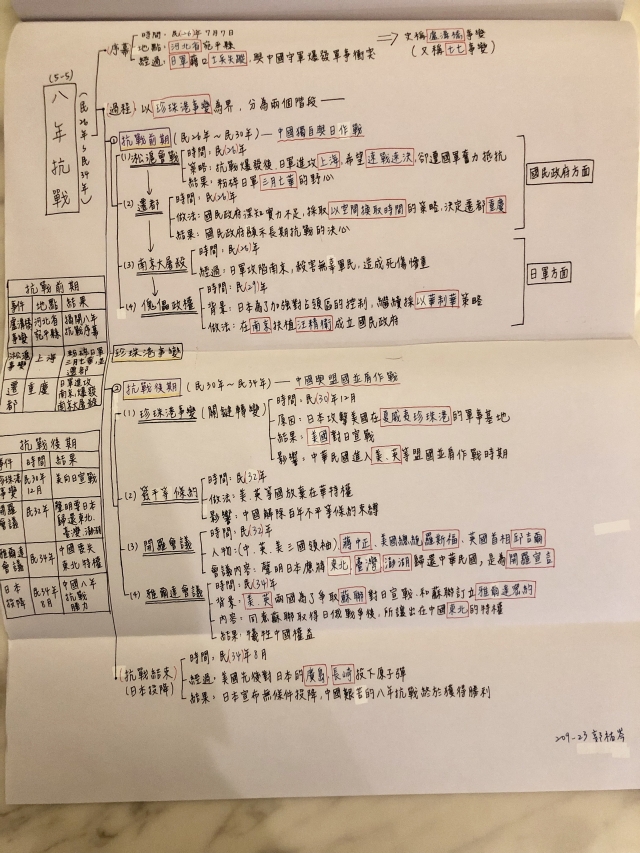 (5-5)
八年抗戰
(民26年~民34年)
序幕
時間：民(26)年7月7日
地點：河北省宛平縣
經過：日軍藉口士兵失蹤，與中國守軍爆發軍事衝突
⇒ 史稱盧溝橋事變
(又稱七七事變)
過程：以珍珠港事變為界，分為兩個階段——
① 抗戰前期(民26年~民30年)—中國獨自與日作戰
(1) 淞滬會戰
時間：民(26)年
策略：抗戰爆發後，日軍進攻上海，希望速戰速決，卻遭國軍奮力抵抗
結果：粉碎日軍三月亡華的野心
(2) 遷都
時間：民(26)年
做法：國民政府深知實力不足，採取以空間換取時間的策略，決定遷都重慶
結果：國民政府顯示長期抗戰的決心
國民政府方面
(3) 南京大屠殺
時間：民(26)年
經過：日軍攻陷南京，殺害無辜軍民，造成死傷慘重
(4) 傀儡政權
時間：民(29)年
背景：日本為了加強對占領區的控制，繼續採以華制華策略
做法：在南京扶植汪精衛成立國民政府
日軍方面
珍珠港事變
② 抗戰後期(民30年~民34年)—中國與盟國並肩作戰
(1) 珍珠港事變(關鍵轉變)
時間：民(30)年12月
原因：日本攻擊美國在夏威夷珍珠港的軍事基地
結果：美國對日宣戰
影響：中華民國進入美、英等盟國並肩作戰時期
(2) 簽平等條約
時間：民(32)年
做法：美、英等國放棄在華特權
影響：中國解除百年不平等條約束縛
(3) 開羅會議
時間：民(32)年
人物：(中、英、美三國領袖)蔣中正、美國總統羅斯福、英國首相邱吉爾
會議內容：聲明日本應將東北、臺灣、澎湖歸還中華民國，是為開羅宣言
(4) 雅爾達會議
時間：民(34)年
背景：美、英兩國為了爭取蘇聯對日宣戰，和蘇聯訂立雅爾達密約
內容：同意蘇聯取得日俄戰爭後，所讓出在中國東北的特權
結果：犧牲中國權益
(抗戰結束)
(日本投降)
時間：民(34)年8月
經過：美國先後對日本的廣島、長崎投下原子彈
結果：日本宣布無條件投降，中國艱苦的八年抗戰終於獲得勝利
抗戰前期
事件 地點 結果
盧溝橋事變 河北省宛平縣 揭開八年抗戰序幕
淞滬會戰 上海 粉碎日軍三月亡華
遷都 重慶 日軍進攻南京，爆發南京大屠殺
抗戰後期
事件 時間 結果
珍珠港事變 民30年12月 美向日宣戰
開羅會議 民32年 聲明要日本歸還東北、臺灣、澎湖
雅爾達會議 民34年 中國喪失東北特權
日本投降 民34年8月 中國八年抗戰勝力
209-23